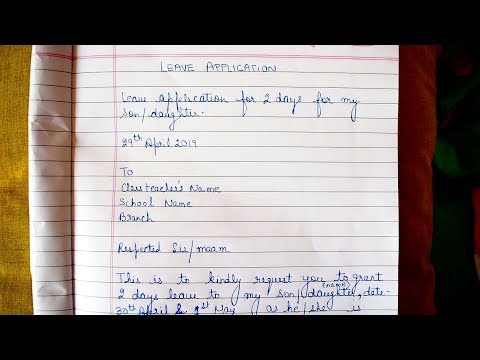 LEAVE APPLICATION
Leave application for 2 days for my
son/daughter.
29th April 2019
To
Classteacher's Name
School Name
Branch
Respected Sir/maam
This is to kindly request you to grant
2 days leave to my son/daughter, (name) date-
30th April & 1st May as he/she is